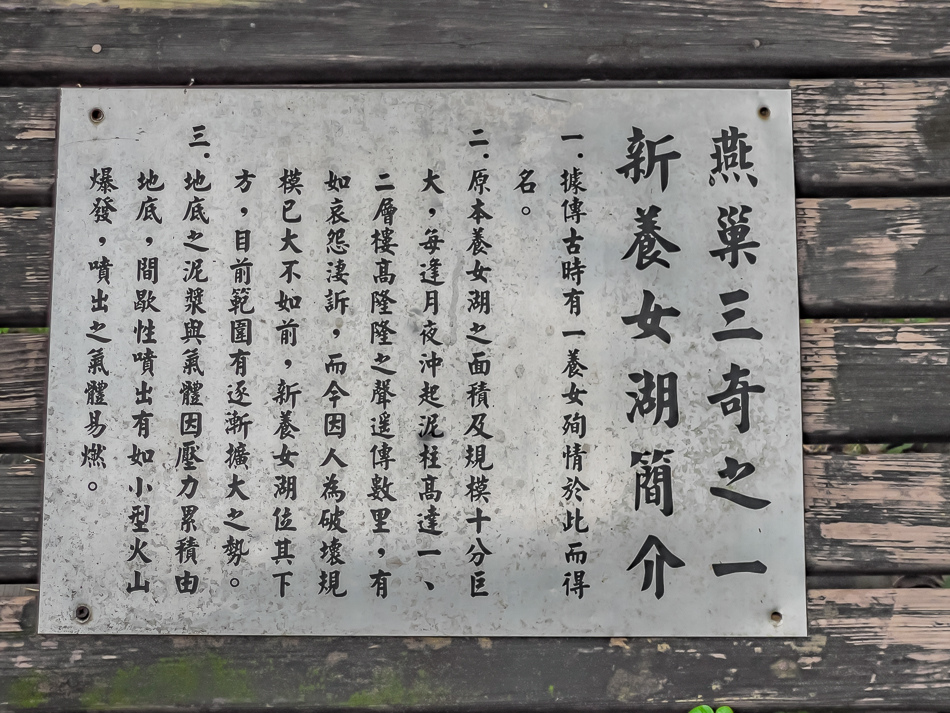 燕巢三奇之一
新養女湖簡介
一.據傳古時有一養女殉情於此而得
名。
二.原本養女湖之面積及規模十分巨
大，每逢月夜沖起泥柱高達一、
二層樓高隆隆之聲遥傳數里，有
如哀怨淒訴，而今因人為破壞規
模已大不如前，新養女湖位其下
方，目前範圍有逐漸擴大之勢。
三.地底之泥漿與氣體因壓力累積由
地底，間歇性噴出有如小型火山
爆發，噴出之氣體易燃。